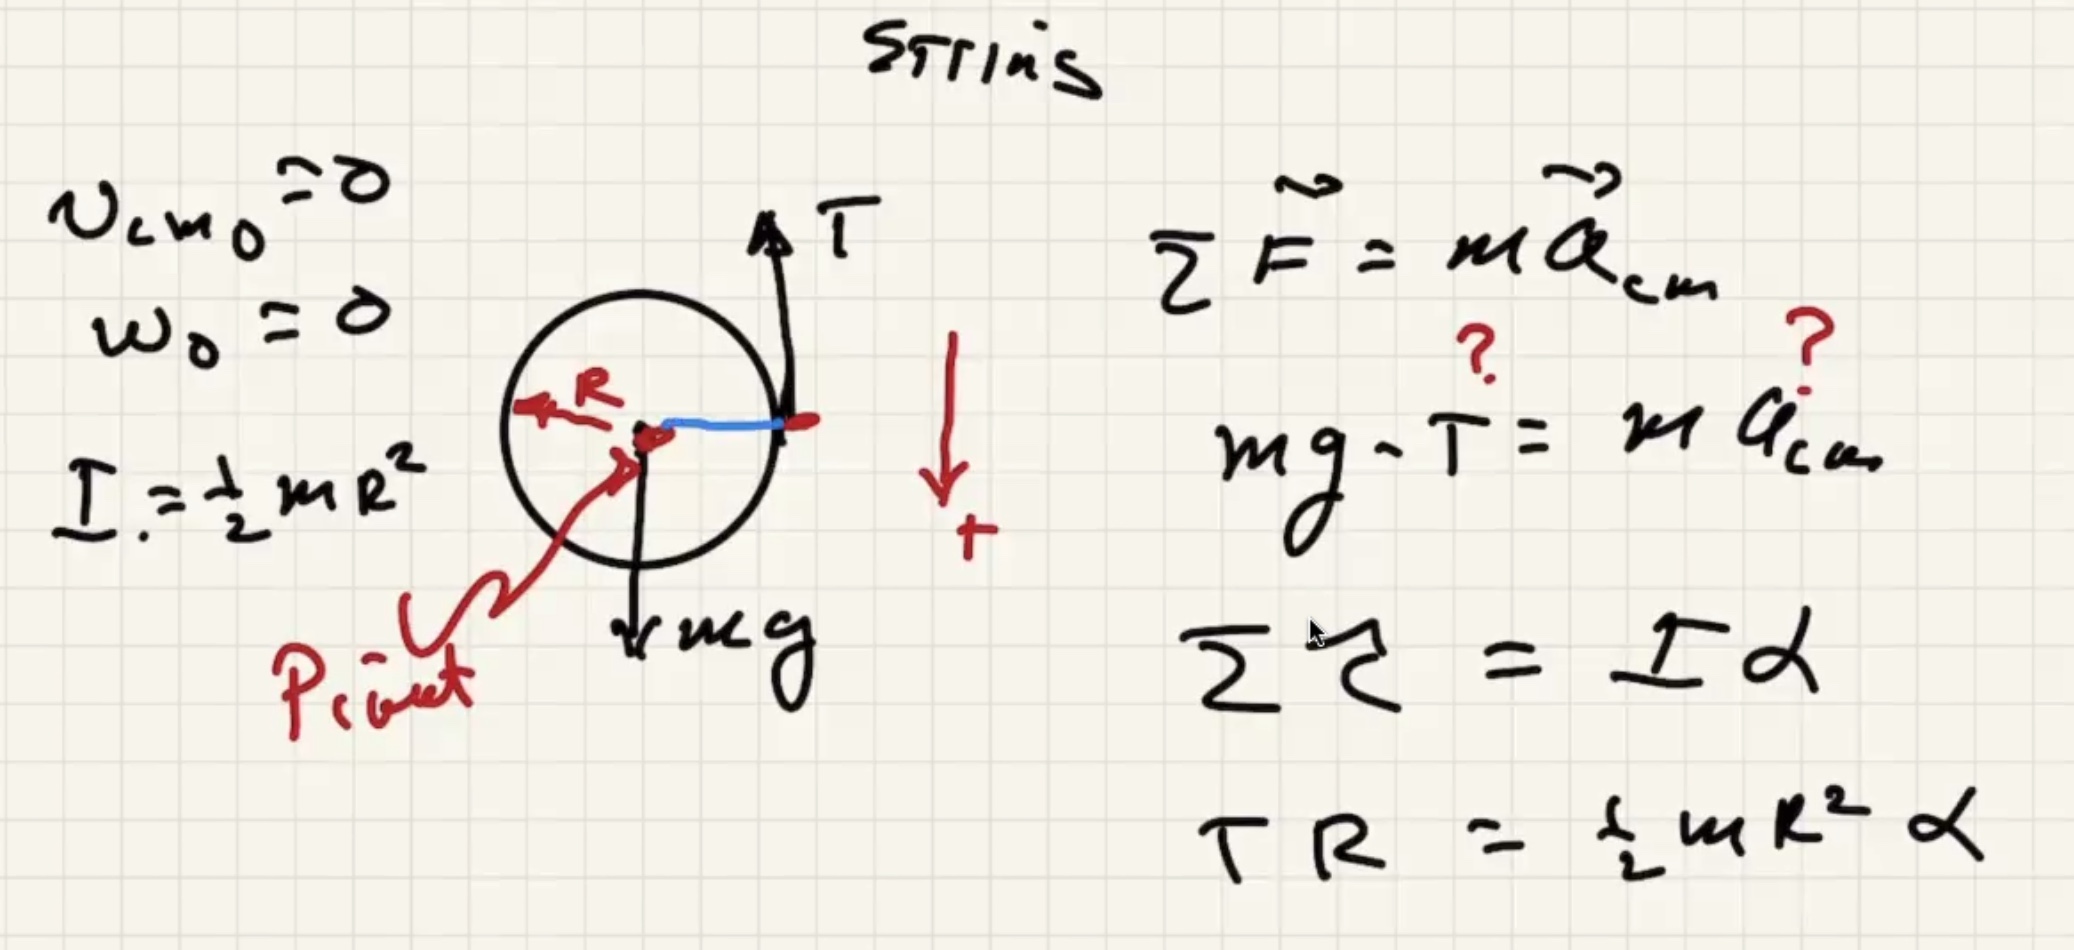 String
v_cm₀ = 0
ω₀ = 0
I = ½ mR²
T
R
mg
Pivot
+
Σ F⃗ = m a⃗_cm
? ?
mg - T = m a_cm
Σ τ = I α
T R = ½ m R² α